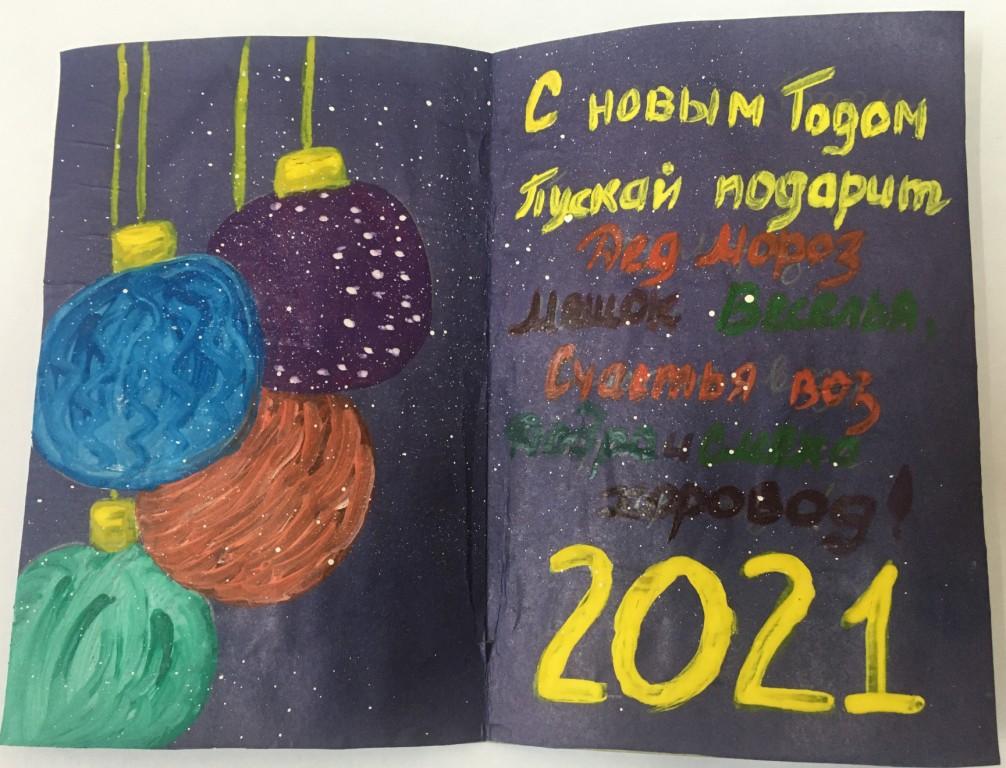 С новым Годом
Пускай подарит
Дед Мороз
Мешок Веселья,
Счастья воз
и смеха
хоровод!
2021